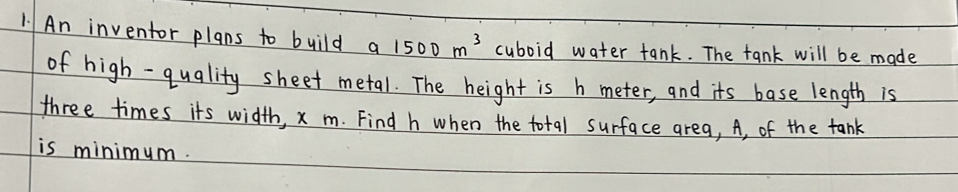 1. An inventor plans to build a 1500 m³ cuboid water tank. The tank will be made
of high-quality sheet metal. The height is h meter, and its base length is
three times its width, x m. Find h when the total surface area, A, of the tank
is minimum.